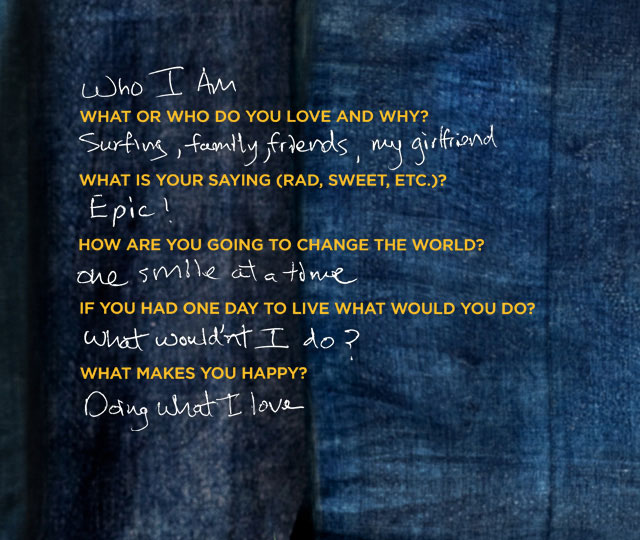 Who I Am
WHAT OR WHO DO YOU LOVE AND WHY?
Surfing, family, friends, my girlfriend
WHAT IS YOUR SAYING (RAD, SWEET, ETC.)?
Epic!
HOW ARE YOU GOING TO CHANGE THE WORLD?
one smile at a time
IF YOU HAD ONE DAY TO LIVE WHAT WOULD YOU DO?
What would'nt I do?
WHAT MAKES YOU HAPPY?
Doing what I love